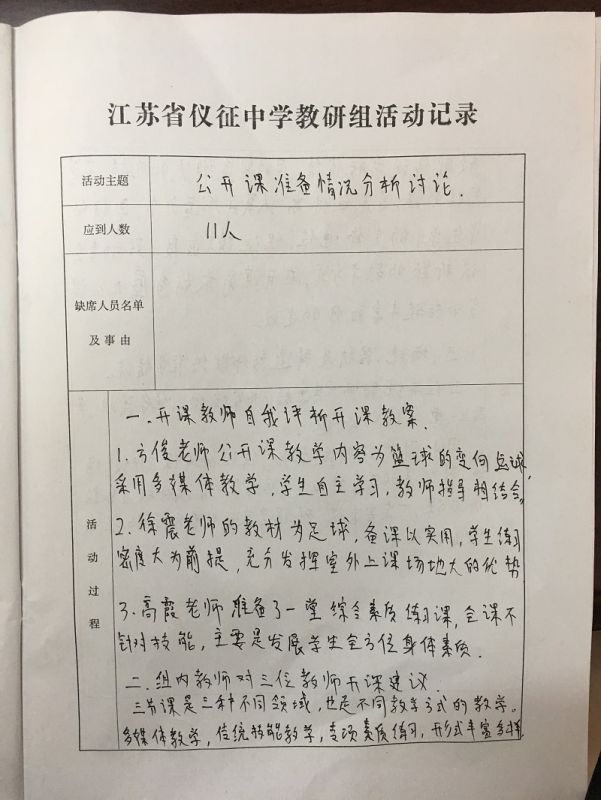 江苏省仪征中学教研组活动记录
活动主题
公开课准备情况分析讨论.
应到人数
11人
缺席人员名单
及事由
活动过程
一.开课教师自我评析开课教案.
1.方俊老师公开课教学内容为篮球的变向运球,
采用多媒体教学,学生自主学习,教师指导相结合。
2.徐震老师的教材为足球,备课以实用,学生练习
密度大为前提,充分发挥室外上课场地大的优势
3.高霞老师准备了一堂综合素质练习课,全课不
针对技能,主要是发展学生全方位身体素质.
二.组内教师对三位教师开课建议.
三节课是三种不同领域,也是不同教学方式的教学。
多媒体教学,传统技能教学,专项素质练习,形式丰富多样